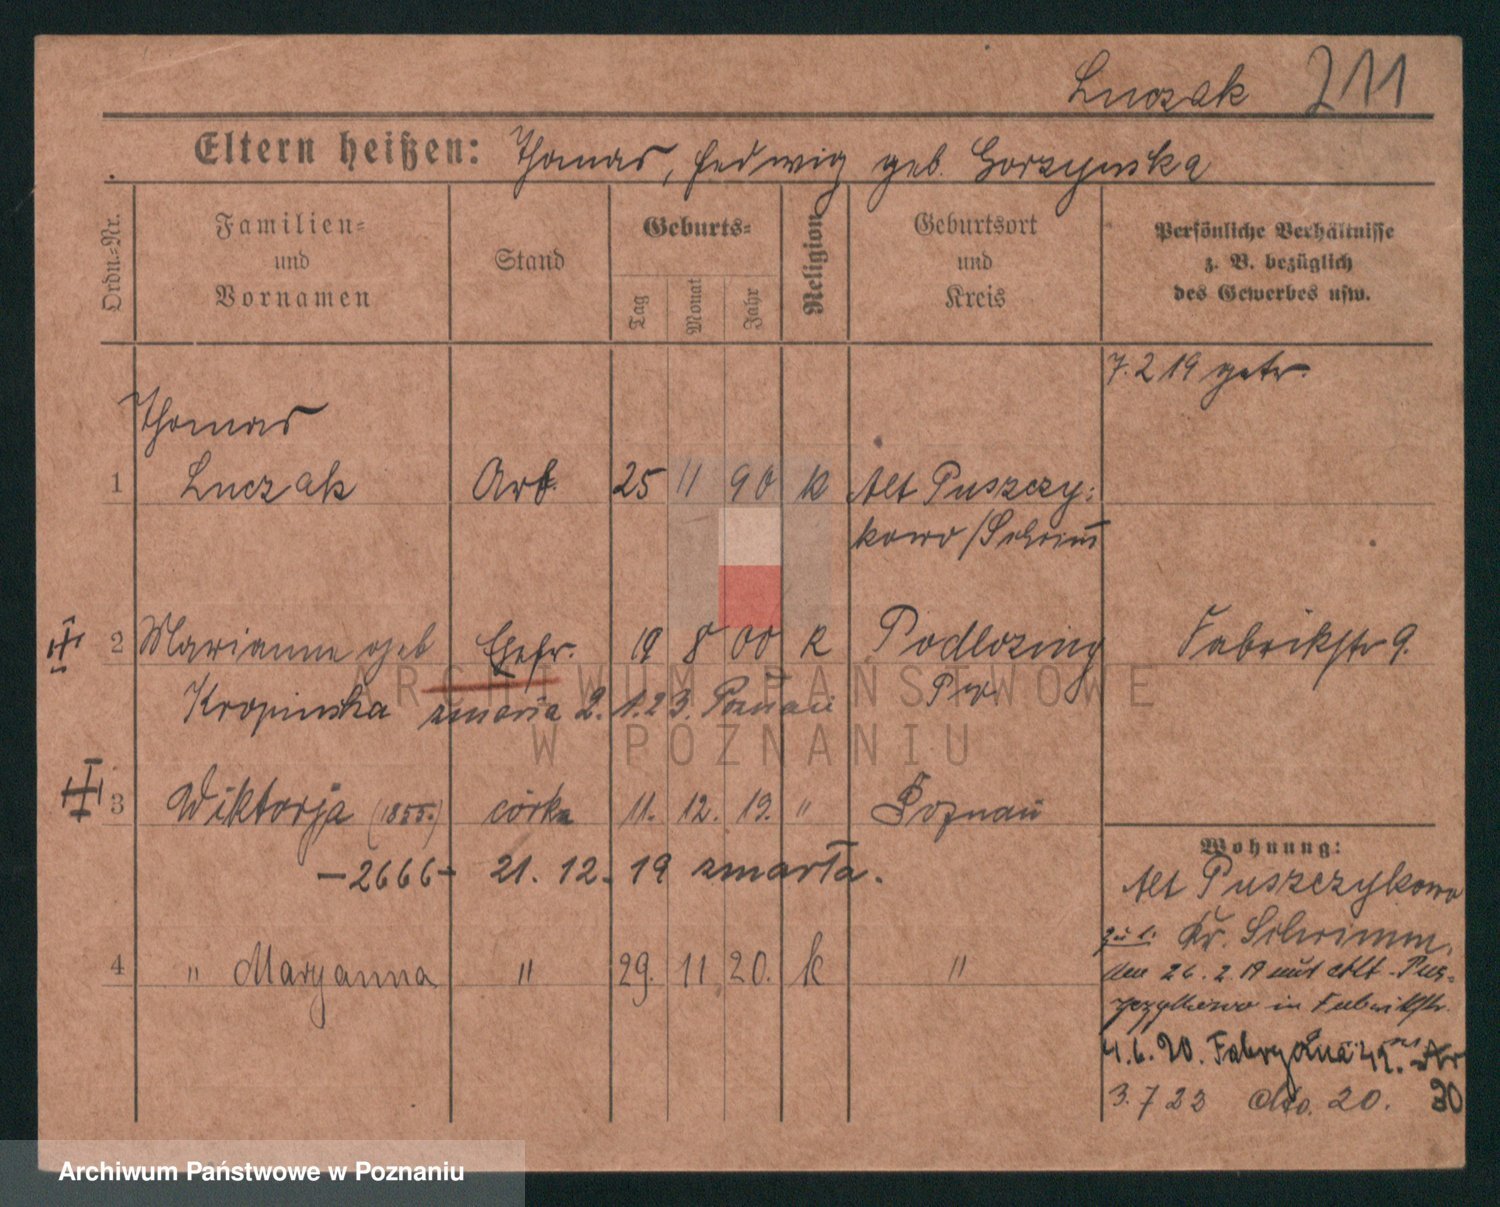 Luczak 211
Eltern heißen: Thomas, Hedwig geb. Gorzynska
Ordn.-Nr.
Familien-
und
Vornamen
Stand
Geburts-
Tag
Monat
Jahr
Religion
Geburtsort
und
Kreis
Persönliche Verhältnisse
z. B. bezüglich
des Gewerbes usw.
7. 2 19 getr.
Thomas
1 Luczak Arb. 25 11 90 k Alt Puszczy-
kowo / Schrimm
2 Marianne geb Ehefr. 19 8 00 k Fabrikstr 9.
Kropinska zmarła 2. 1. 23. Poznań
3 Wiktorja (1855.) córka 11. 12. 19. " Poznań
-2666- 21. 12. 19 zmarła.
4 " Maryanna " 29. 11 20. k "
Wohnung:
Alt Puszczykowo
Kr. Schrimm,
26. 2. 19 mit Alt-Pusz-
czykowo in Fabrikstr.
4. 6. 20. Fabryczna
3. 7 23 dto. 20. 30
ARCHIWUM PAŃSTWOWE
W POZNANIU
Archiwum Państwowe w Poznaniu